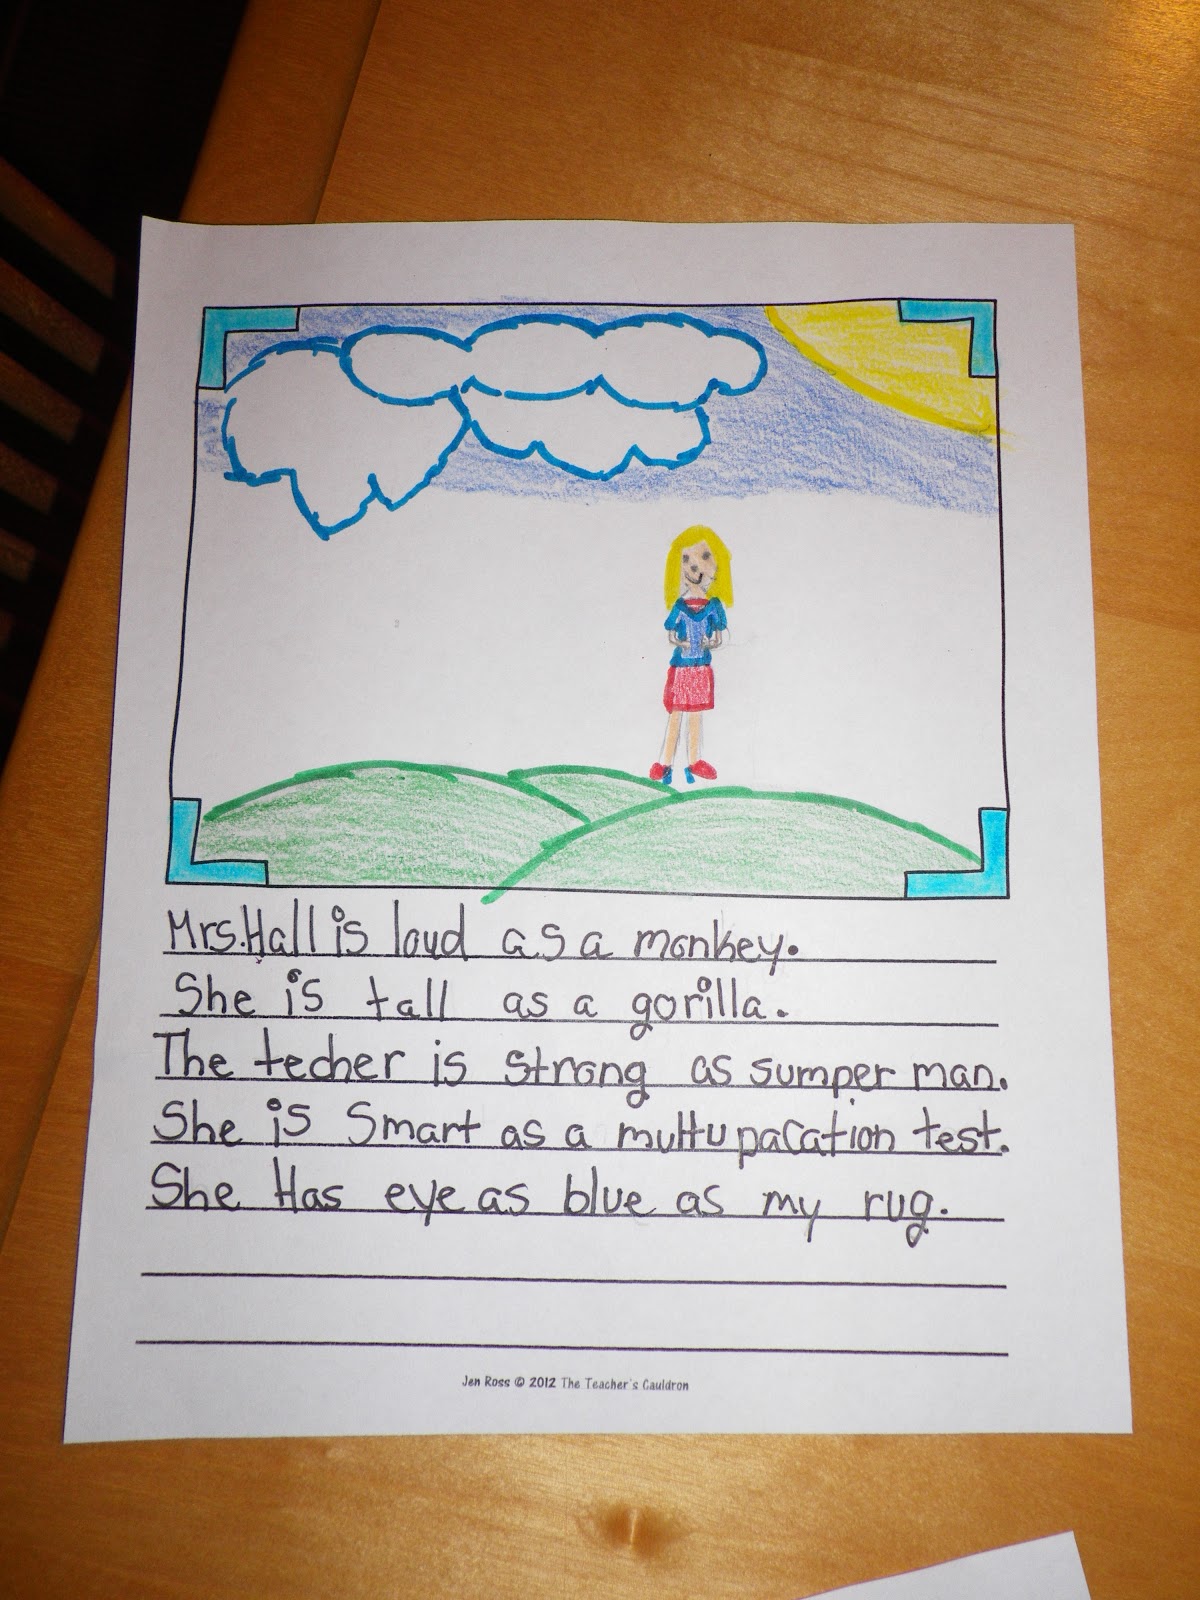 Mrs. Hall is loud as a monkey.
She is tall as a gorilla.
The techer is strong as sumper man.
She is Smart as a multupacation test.
She Has eye as blue as my rug.
Jen Ross © 2012 The Teacher's Cauldron